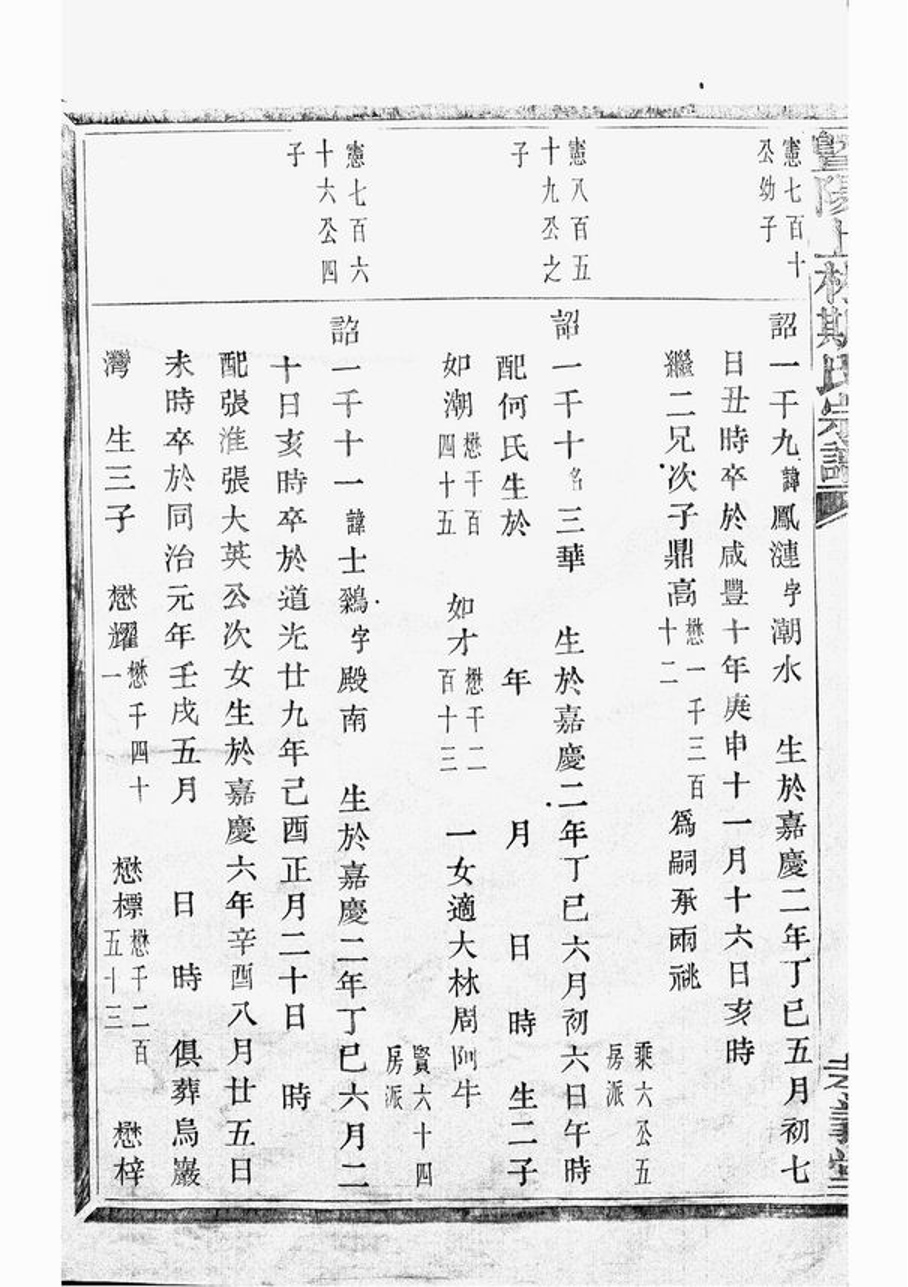 暨陽上林斯氏宗譜
憲七百十
公幼子
詔一千九諱鳳漣字潮水 生於嘉慶二年丁巳五月初七
日丑時卒於咸豐十年庚申十一月十六日亥時
繼二兄次子鼎高懋一千三百十二爲嗣承兩祧
乘六公五
房派
憲八百五
十九公之
子
詔一千十名三華 生於嘉慶二年丁巳六月初六日午時
配何氏生於 年 月 日 時 生二子
如潮懋千百四十五 如才懋千二百十三 一女適大林周阿牛
賢六十四
房派
憲七百六
十六公四
子
詔一千十一諱士鷄字殿南 生於嘉慶二年丁巳六月二
十日亥時卒於道光廿九年己酉正月二十日 時
配張淮張大英公次女生於嘉慶六年辛酉八月廿五日
未時卒於同治元年壬戌五月 日 時 俱葬烏巖
灣 生三子 懋耀懋千四十一 懋標懋千二百五十三 懋梓